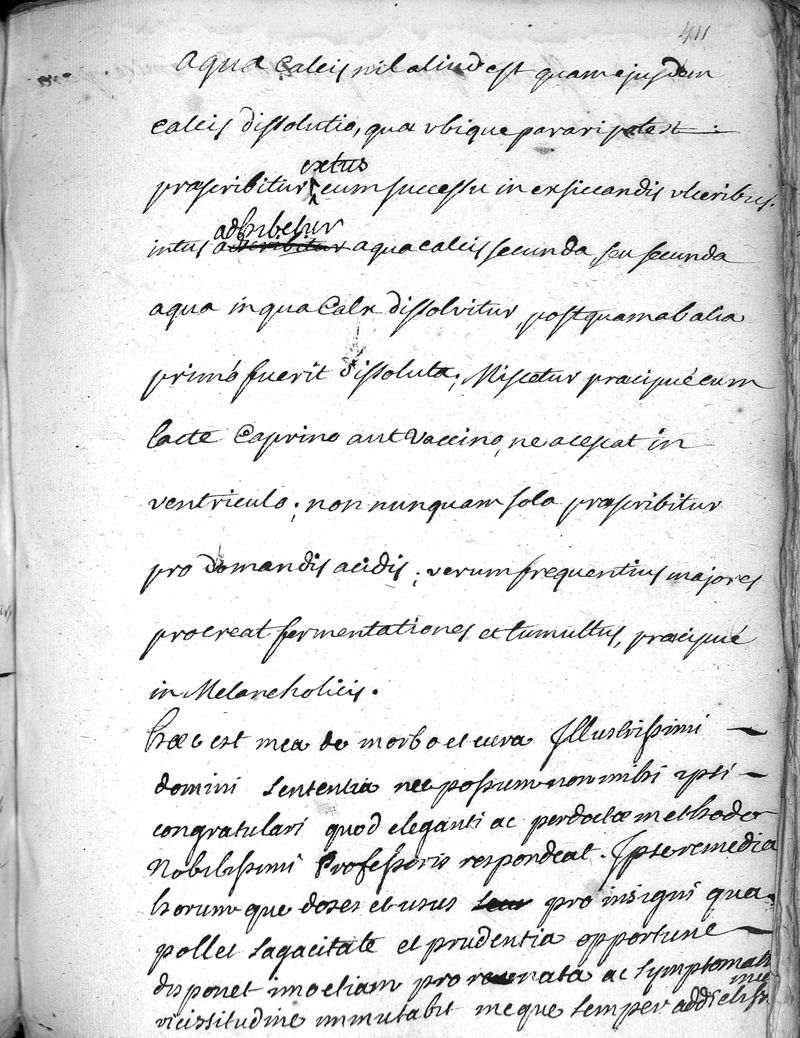 411
aqua Calcis nil aliud est quam ejusdem
calcis dissolutio, qua ubique parari potest.
extus
præscribitur, cum successu in exsiccandis ulceribus.
adhibetur
intus adscribitur aqua calcis secunda, seu secunda
aqua in qua Calx dissolvitur, postquam ab alia
primò fuerit dissoluta; Miscetur præcipuè cum
lacte Caprino aut Vaccino, ne acescat in
ventriculo; non nunquam sola præscribitur
pro domandis acidis; verum frequentius majores
procreat fermentationes et tumultus, præcipuè
in Melancholicis.
hæc est mea de morbo et cura Illustrissimi
domini sententia nec possum non mihi ipsi
congratulari quod eleganti ac perdoctæ methodo
Nobilissimi Professoris respondeat. Ipse remedia
horumque doses et usus pro insigni qua
pollet sagacitate et prudentia opportune
disponet imo etiam pro re nata ac symptomatum
vicissitudine immutabit meque semper